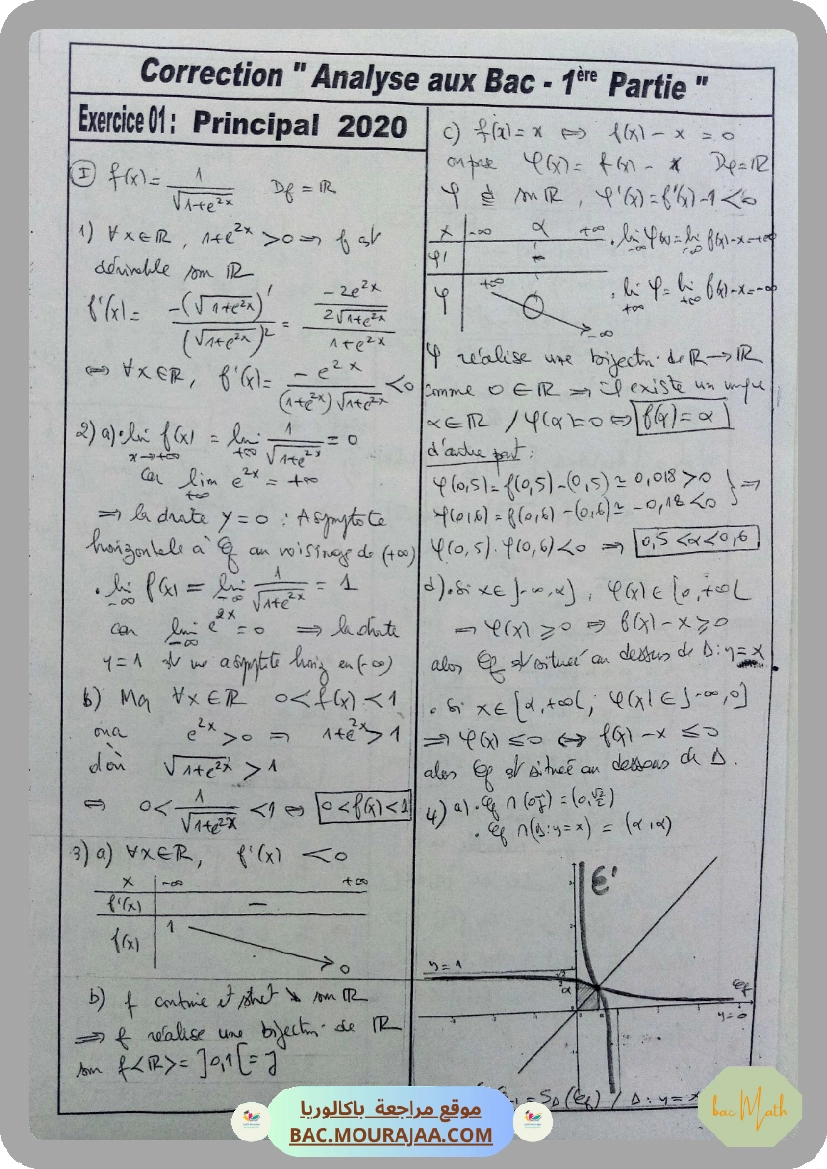 Correction " Analyse aux Bac - 1ère Partie "
Exercice 01 : Principal 2020
I f(x) = 1/√(1+e^2x) Df = IR
1) ∀x∈IR, 1+e^2x > 0 ⇒ f est
dérivable sur IR
f'(x) = -(√(1+e^2x))' / (√(1+e^2x))² = (-2e^2x / 2√(1+e^2x)) / (1+e^2x)
⇔ ∀x∈IR, f'(x) = -e^2x / ((1+e^2x)√(1+e^2x)) < 0
2) a) • lim x→+∞ f(x) = lim +∞ 1/√(1+e^2x) = 0
car lim +∞ e^2x = +∞
⇒ la droite y=0 : Asymptote
horizontale à Cf au voisinage de (+∞)
• lim -∞ f(x) = lim -∞ 1/√(1+e^2x) = 1
car lim -∞ e^2x = 0 ⇒ la droite
y=1 est une asymptote horiz en (-∞)
b) Mq ∀x∈IR 0<f(x)<1
on a e^2x > 0 ⇒ 1+e^2x > 1
d'où √(1+e^2x) > 1
⇔ 0 < 1/√(1+e^2x) < 1 ⇔ 0<f(x)<1
3) a) ∀x∈IR, f'(x) < 0
x -∞ +∞
f'(x) —
f(x) 1 0
b) f continue et strict ↘ sur IR
⇒ f réalise une bijectn. de IR
sur f<IR> = ]0,1[ = J
c) f(x)=x ⇔ f(x) - x = 0
on pose φ(x) = f(x) - x Dφ=IR
φ sur IR, φ'(x)=f'(x)-1 <0
x -∞ α +∞
φ' -
φ +∞ 0 -∞
• lim -∞ φ(x) = lim -∞ f(x)-x = +∞
• lim +∞ φ = lim +∞ f(x)-x = -∞
φ réalise une bijectn. de IR → IR
comme 0 ∈ IR ⇒ il existe un unique
α∈IR / φ(α)=0 ⇔ f(α) = α
d'autre part :
φ(0,5) = f(0,5)-(0,5) ≃ 0,018 >0
φ(0,6) = f(0,6)-(0,6) ≃ -0,18 <0 } ⇒
φ(0,5).φ(0,6)<0 ⇒ 0,5<α<0,6
d) • Si x∈]-∞,α], φ(x)∈[0,+∞[
⇒ φ(x) ≥ 0 ⇒ f(x)-x ≥ 0
alors Cf est située au dessus de Δ: y=x
• Si x∈[α,+∞[; φ(x)∈]-∞,0]
⇒ φ(x) ≤ 0 ⇔ f(x)-x ≤ 0
alors Cf est située au dessous de Δ.
4) a) • Cf ∩ (oj) = (0,√2/2)
• Cf ∩ (Δ: y=x) = (α,α)
C'
y=1
α
Cf
y=0
= SΔ(Cf) / Δ: y=x
موقع مراجعة باكالوريا
BAC.MOURAJAA.COM
bac Math